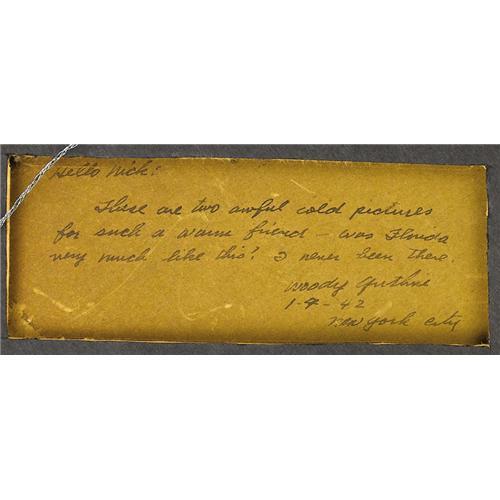 Hello Nick:
These are two awful cold pictures
for such a warm friend - was Florida
very much like this? I never been there.
Woody Guthrie
1-4-42
New York City